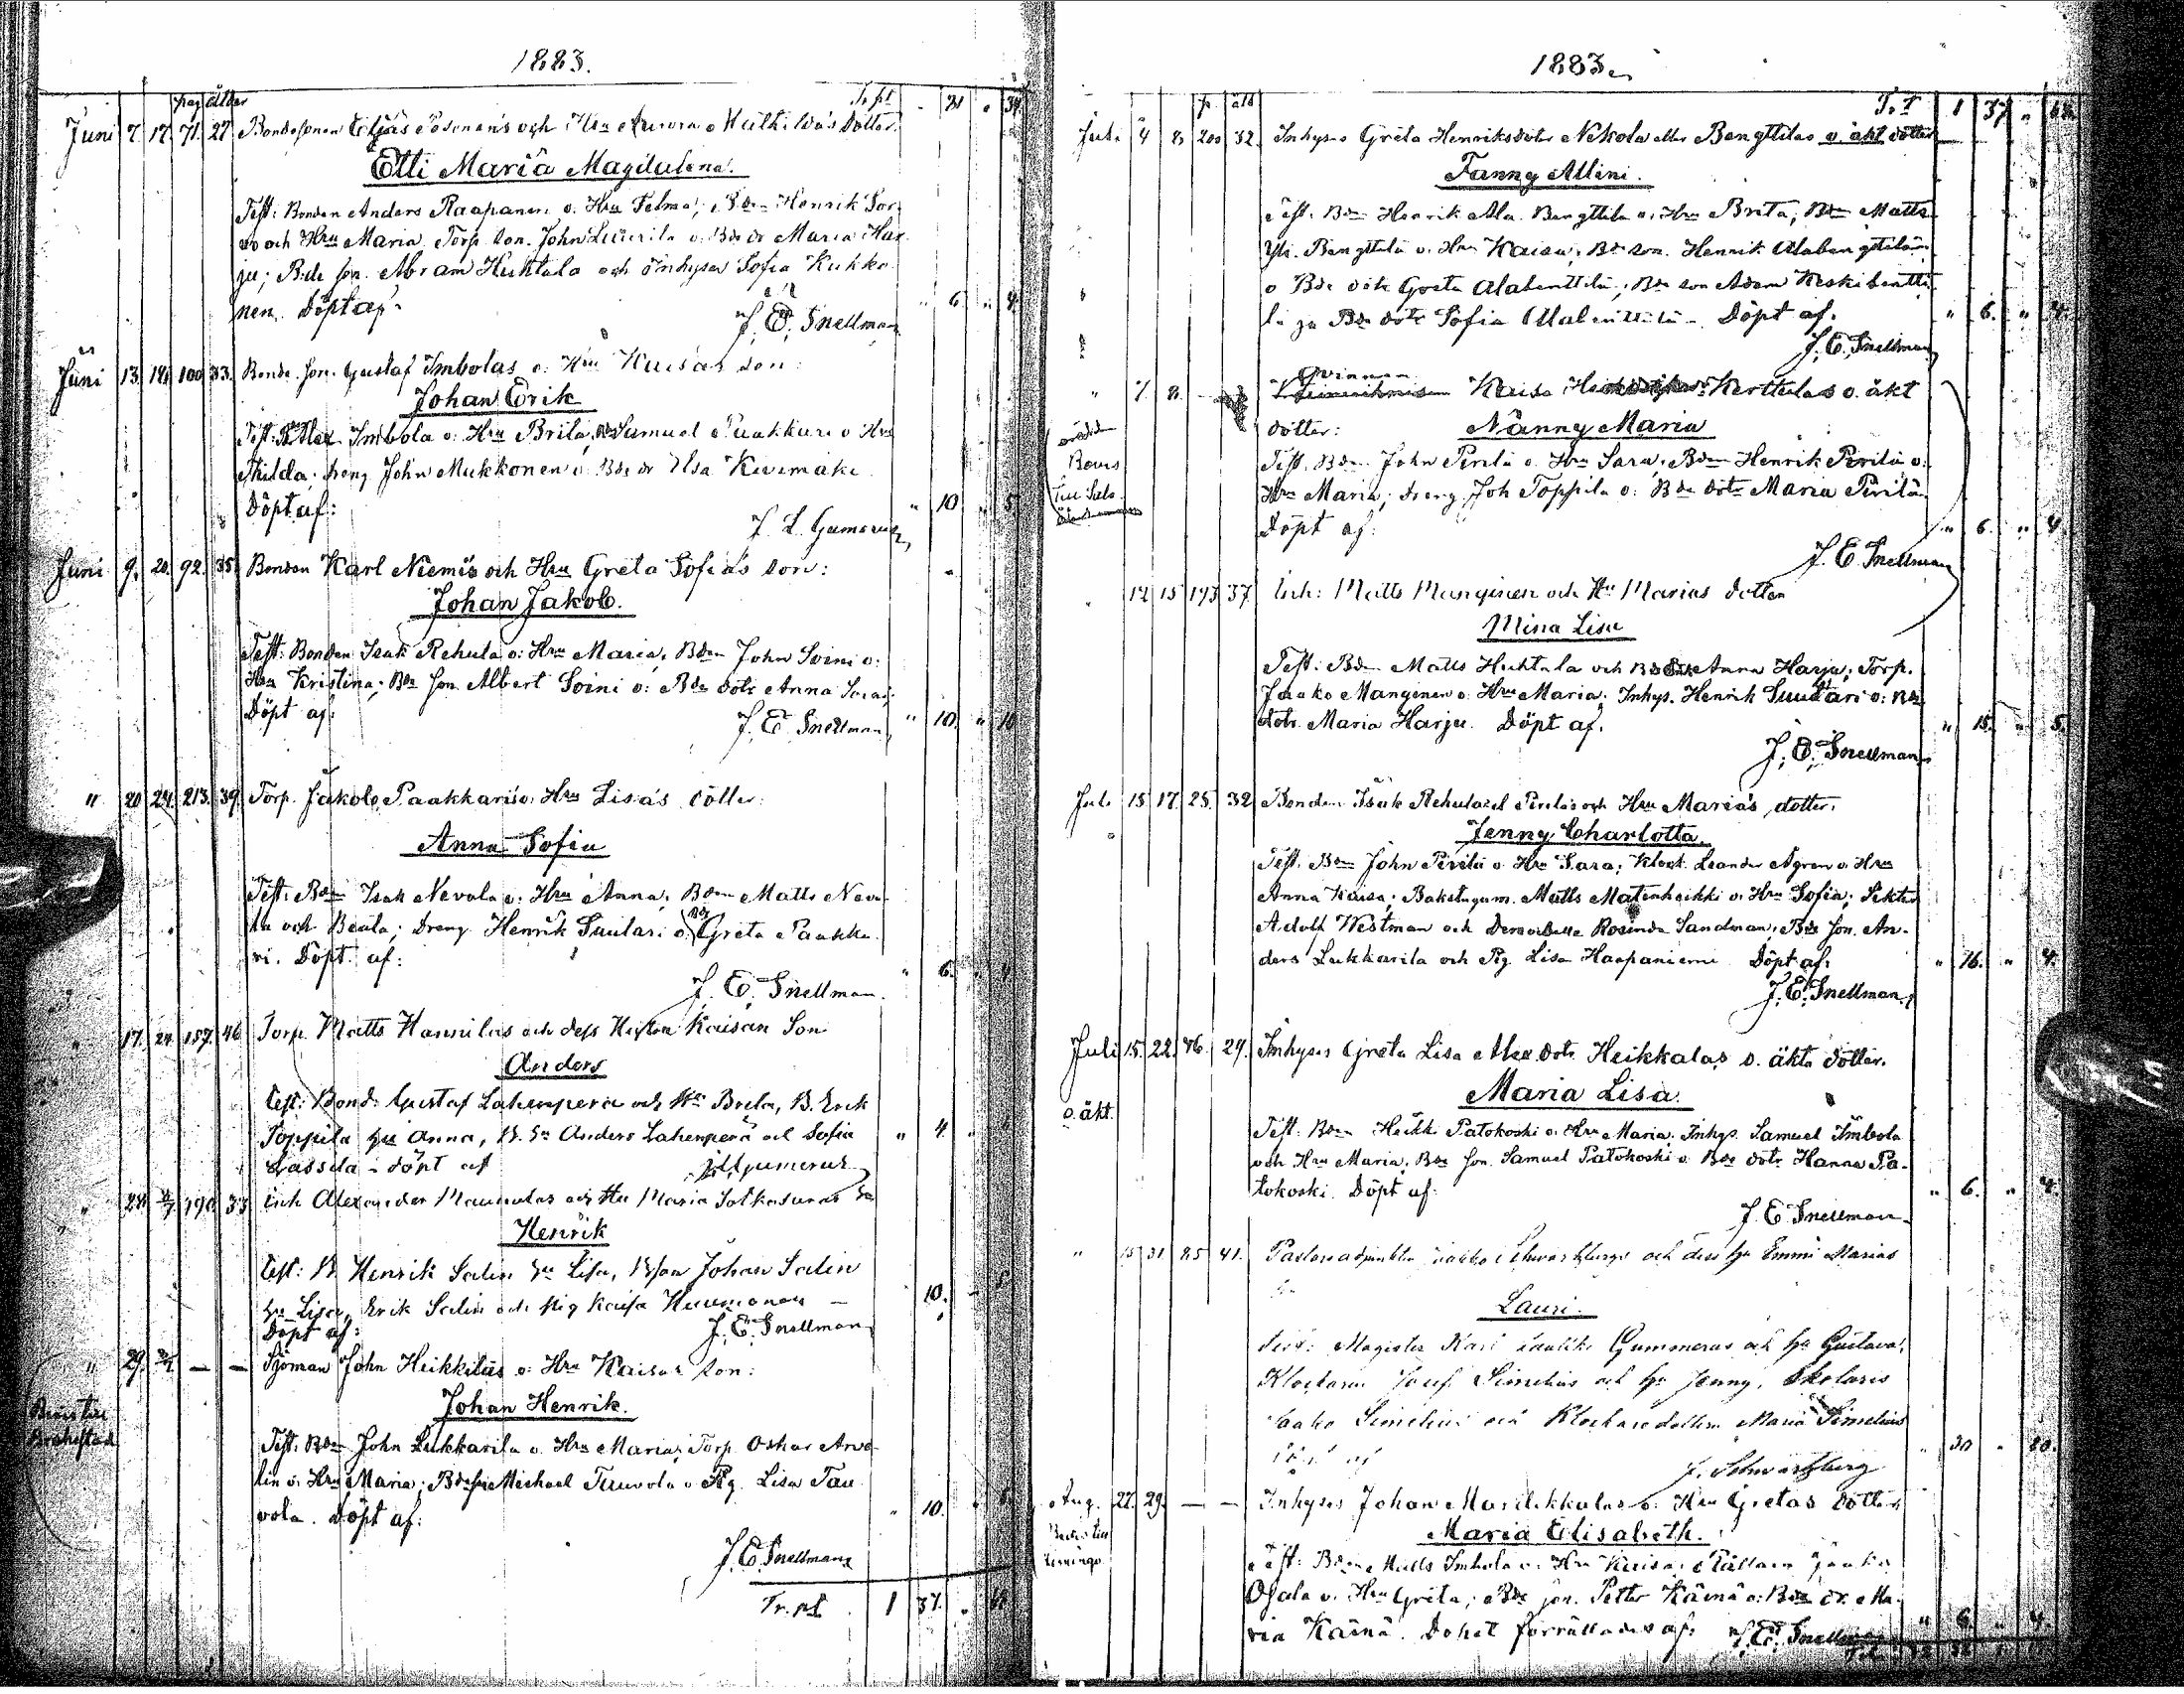 1883.
pag ålder Tr. pt 31 34
Juni 7. 17. 71. 27 Bondesonen Elias och Hru Aurora Mathilda's dotter.
Etti Maria Magdalena.
Test: Bonden Anders Raapanen o. Hru Selma; Bden Henrik Sor-
vo och Hru Maria. Torp. son. John Luurila o. Bde dr Maria Har-
ju; Bde son. Abram Huhtala och Inhyses Sofia Kukko-
nen. Döpt af: 6. 4
J. E. Snellman
Juni 13. 18. 100 33. Bonde. son. Gustaf Imbolas o. Hru Kaisas son:
Johan Erik
Test: Alex Imbola o: Hru Brita, Samuel Paakkari o Hru
Hilda; dreng John Mukkonen o. Bde dr Elsa Kivimäki
Döpt af: 10 5
J. L. Gumerus
Juni 9. 20. 92. 35 Bonden Karl Niemis och Hru Greta Sofias son:
Johan Jakob.
Test: Bonden Isak Rehula o: Hru Maria, Bden John Soini o:
Hru Kristina; Bde son Albert Soini o: Bde dotr Anna Soini;
Döpt af: 10. 10
J. E. Snellman
" 20 24. 213. 39. Torp. Jakob Paakkaris o. Hru Lisas dotter:
Anna Sofia
Test: Bden Isak Nevala o: Hru Anna; Bden Matts Neva-
la och Beata; Dreng Henrik Suutari o. Bde Greta Paakka-
ri. Döpt af: 6. 4
J. E. Snellman.
" 17. 24. 157. 46 Torp. Matts Hannilas och dess Hustru Kaisas Son
Anders
Test: Bond. Gustaf Lahenperä och Hru Breta, B. Erik
Toppila hu Anna, B. Sn Anders Lahenperä och Sofia 4.
Lassila - döpt af JLGumerus
" 28. 2/7 190 33 Inh Alexander Maunulas och Hu Maria Sotkasaaras Sn
Henrik
Test: B. Henrik Salin hu Lisa, B son Johan Salin
hu Lisa, Erik Salin och pig Kaisa Huumonen - 10. 5
Döpt af: J. E. Snellman
" 29. 2/7 — — Sjöman John Heikkiläs o: Hru Kaisas son:
Johan Henrik.
Bevis till
Brahestad
Test: Bden John Lukkarila o. Hru Maria; Torp. Oskar Arve-
lin o: Hru Maria; Bdeson Michael Tuuvola o Pig. Lisa Tau-
vola. Döpt af: 10.
J. E. Snellman
Tr. pt. 1 37. 68
1883.
p. åld Tr. T 1 37 68.
Juli 4 8 200 32. Inhyses Greta Henriksdotr Nikola eller Bengttilas o. äkt dotter
Fanny Allini.
Test. Bden Henrik Ala Bengttila o. Hru Brita; Bden Matts
Yli Bengttila o. Hru Kaisa; Bde son. Henrik Alabengttila
o Bde dotr Greta Alabenttila; Bde son Adam Keskibentti-
la ja Bde dotr Sofia Alabenttila. Döpt af. 6. 4.
J. E. Snellman
" 7. 8. — Qvinnan Kaisa Kerttulas o. äkt
dotter: Nanny Maria
Bevis
Test. Bden John Perilä o. Hru Sara; Bden Henrik Perilä o.
Hru Maria; dreng Joh Toppila o: Bde dotr Maria Perilä
Döpt af: 6. 4.
J. E. Snellman
" 12 15 193 37. Inh: Matts Manginen och Hu Marias dotter
Mina Lisa
Test: Bden Matts Huhtala och Anna Harju; Torp.
Jaako Manginen o. Hru Maria; Inhys. Henrik Suutari o: Bde
dotr. Maria Harju. Döpt af. 15. 5.
J. E. Snellman
Juli 15. 17. 25. 32 Bonden Isak Rehula el Perilä's och Hru Marias dotter.
Jenny Charlotta.
Test. Bden John Perilä o. Hru Sara; Klock. Leander Ågren o. Hru
Anna Kaisa; Bakstugum. Matts Matinheikki o. Hru Sofia; Sekter
Adolf Westman och Demoiselle Rosinda Sandman; Bde son. An-
ders Lukkarila och Pig. Lisa Haapaniemi Döpt af: 16. 4.
J. E. Snellman
Juli 15. 22. 46. 29. Inhyses Greta Lisa Alex. dotr. Heikkalas o. äkta dotter.
Maria Lisa.
o. äkt.
Test: Bden Heikki Patokoski o. Hru Maria; Inhys. Samuel Imbola
och Hru Maria; Bde son. Samuel Patokoski o Bde dotr Hanna Pa-
tokoski. Döpt af: 6. 4.
J. E. Snellman
" 15 31 85 41. Pastorsadjunkten Jaakko Schwartzbergs och dess hu Emmi Marias
Sn
Lauri.
Test: Magister Karl Gummerus och hu Gustava;
Klockaren Josef Simelius och hu Jenny, Skolaris
Jaako Simelius och Klockaredottern Maria Simelius
Döpt af 30 20.
J. Schwartzberg
Aug. 22. 29. — — Inhyses Johan Marilukkalas o: Hru Gretas dotter
Maria Elisabeth.
Bevis till
Kemingo
Test: Bden Matts Imbola o. Hru Kaisa; Jaako
Ojala o. Hru Greta; Bde son. Petter Känä o: Bde dr. Ma-
ria Känä. Dopet förrättades af: J. E. Snellman 6. 4.